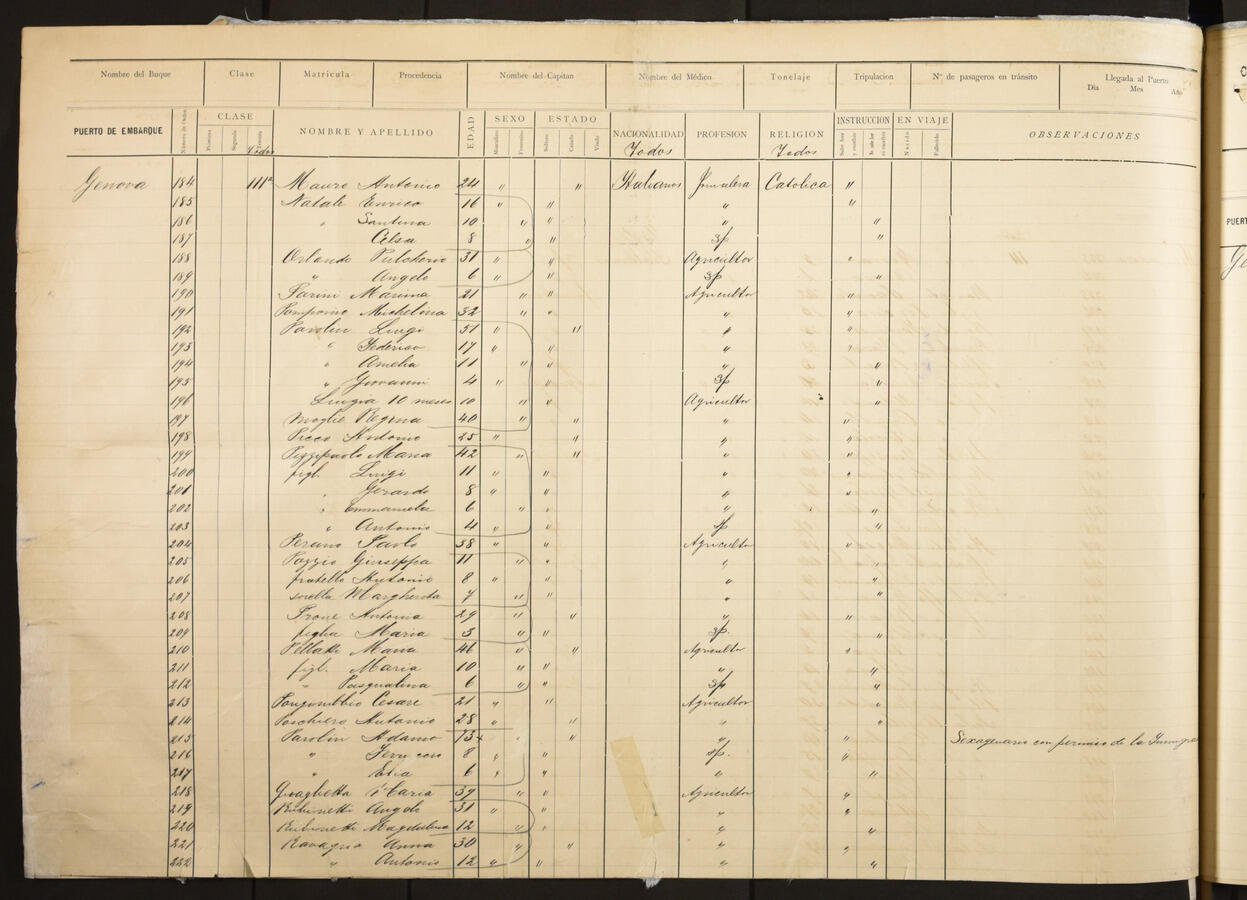 Nombre del Buque Clase Matricula Procedencia Nombre del Capitan Nombre del Médico Tonelaje Tripulacion Nº de pasageros en tránsito Llegada al Puerto
Dia Mes Año
PUERTO DE EMBARQUE Número de Orden CLASE NOMBRE Y APELLIDO EDAD SEXO ESTADO NACIONALIDAD PROFESION RELIGION INSTRUCCION EN VIAJE OBSERVACIONES
Primera Segunda Tercera Masculino Femenino Soltero Casado Viudo Nacido Fallecido
Todos Todos Todos
Genova 184 III Mauro Antonio 24 " " Italianos Jornalera Catolica "
185 Natale Enrico 16 " " " "
186 " Santina 10 " " " "
187 Celsa 8 " " sp "
188 Orlando Pulcherio 31 " " Agricultor "
189 " Angelo 6 " " sp "
190 Parini Marina 21 " " Agricultor "
191 Pomponio Michelina 32 " " " "
192 Parolin Luigi 51 " " " "
193 " Federico 17 " " " "
194 " Amelia 11 " " " "
195 " Giovanni 4 " " sp "
196 10 meses 10 " " Agricultor "
197 Moglie Regina 40 " " " "
198 Antonio 25 " " " "
199 Maria 42 " " " "
200 figl. Luigi 11 " " " "
201 " Gerardo 8 " " " "
202 " 6 " " " "
203 " Antonio 4 " " sp "
204 Paolo 38 " " Agricultor "
205 Poggio Giuseppa 11 " " " "
206 fratello Antonio 8 " " " "
207 sorella Margherita 7 " " " "
208 Antonia 29 " " " "
209 figlia Maria 3 " " sp. "
210 Maria 46 " " Agricultor "
211 figl. Maria 10 " " " "
212 " Pasqualina 6 " " sp "
213 Cesare 21 " " Agricultor "
214 Poschiero Antonio 28 " " " "
215 Parolin Adamo 73 " " " " Sexagenario con permiso de la
216 " Ferruccio 8 " " sp. "
217 " Elia 6 " " " "
218 Quaglietta Maria 39 " " Agricultor "
219 Angelo 31 " " " "
220 Magdalena 12 " " " "
221 Ravagno Anna 30 " " " "
222 " Antonio 12 " " " "